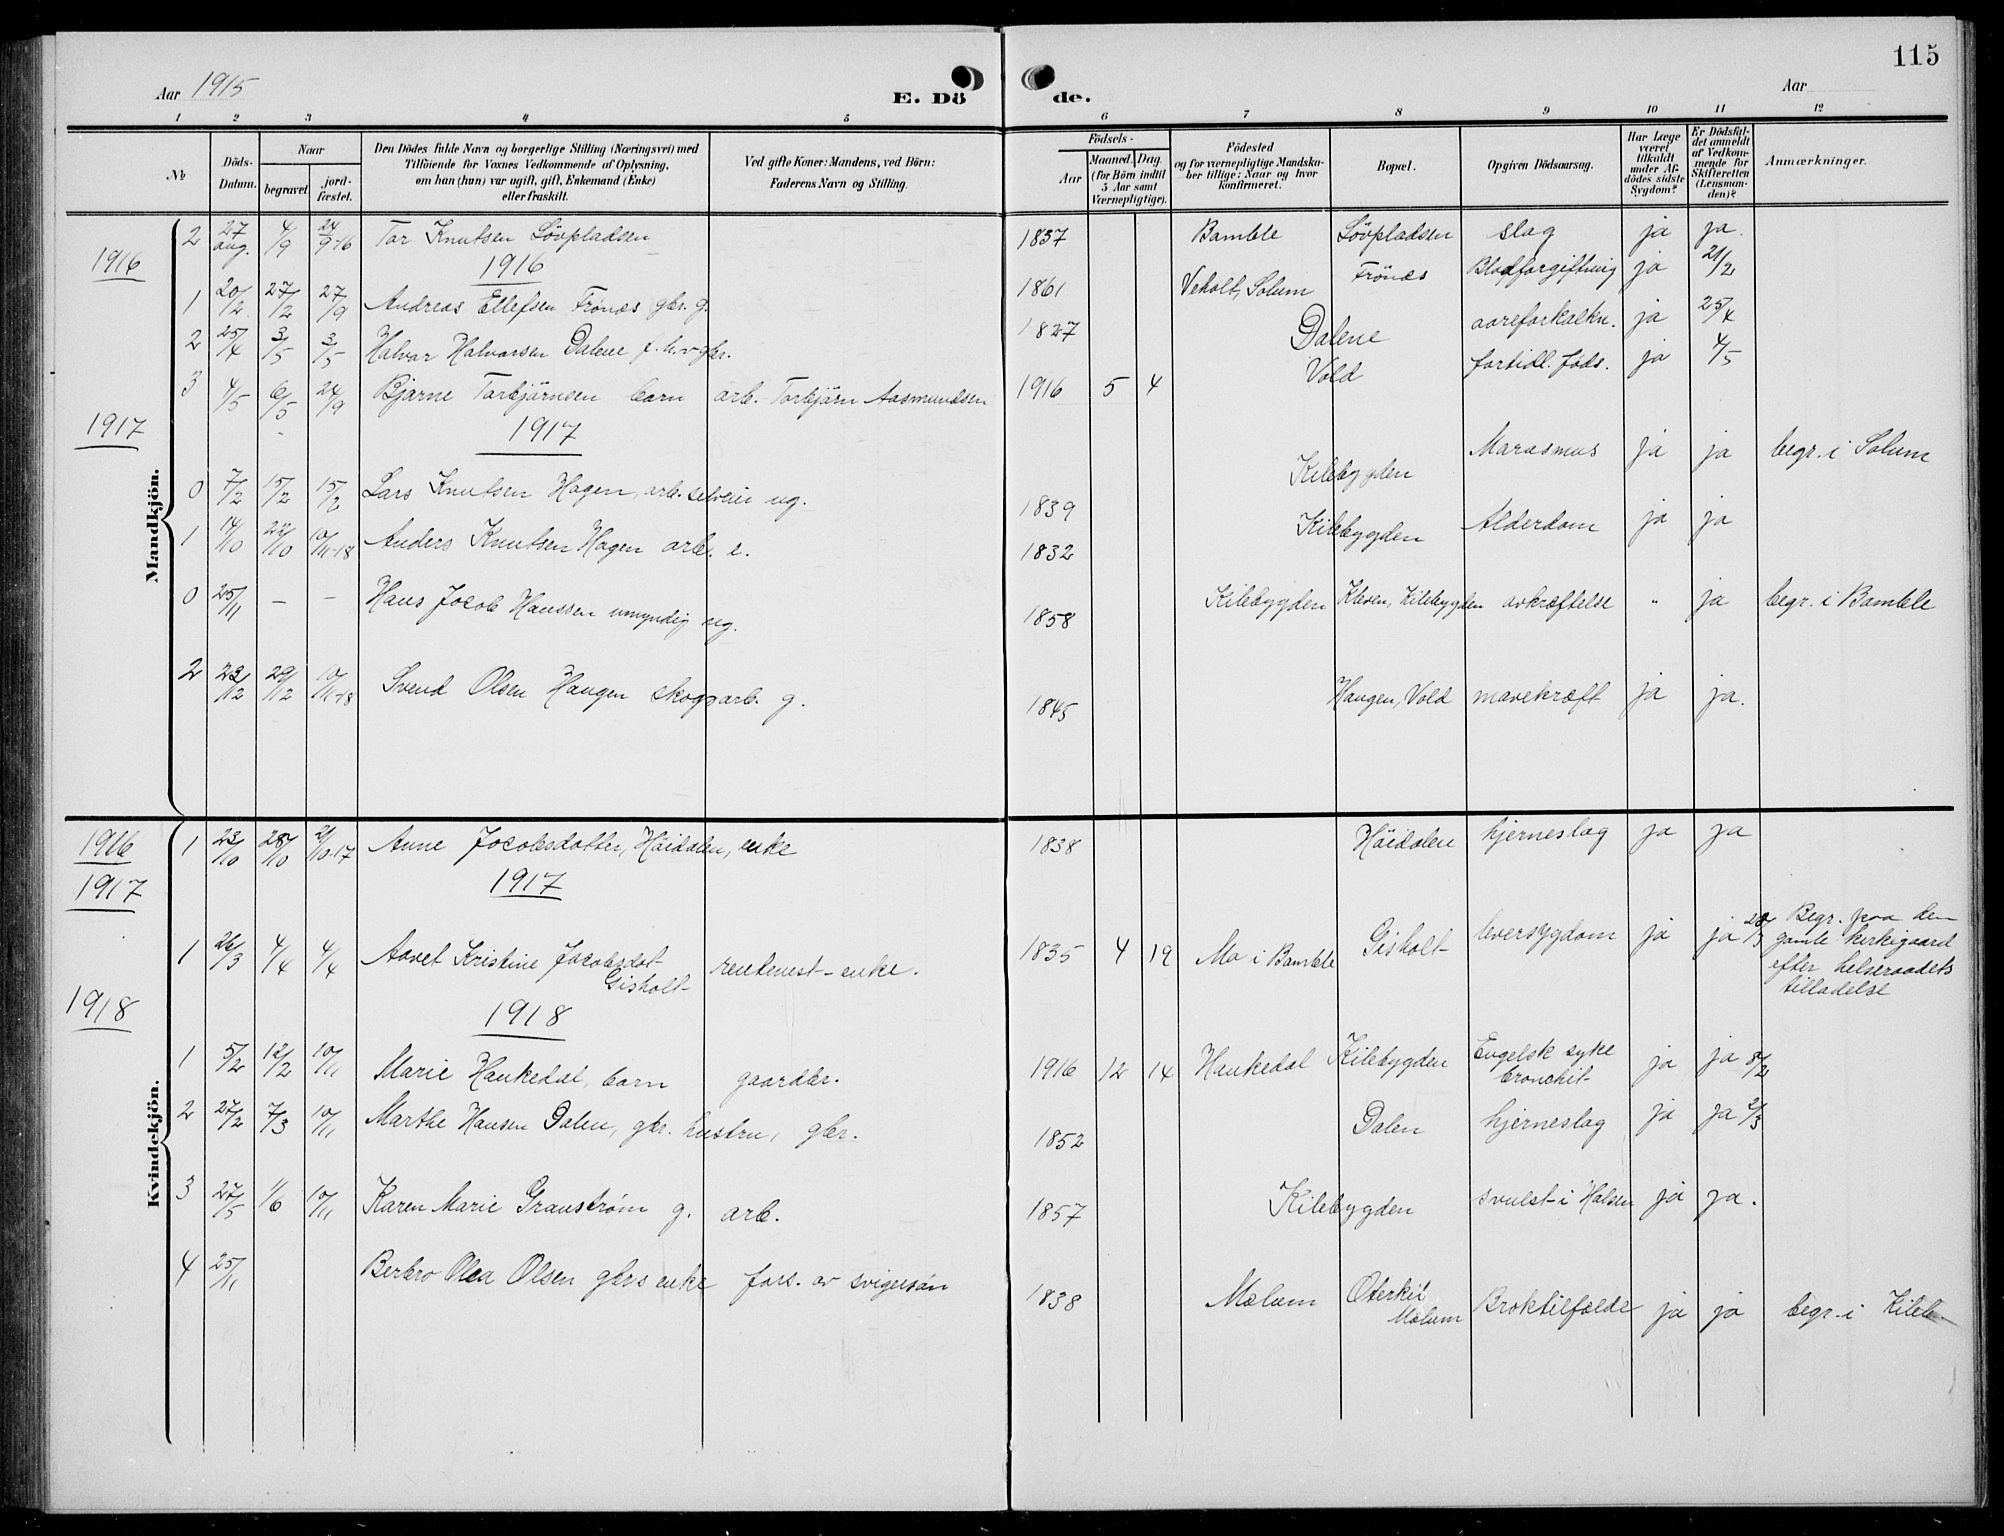 115
Aar 1915
E. Dö
de.
Aar
1 2 3 4 5 6 7 8 9 10 11 12
No
Döds-Datum.
Naar
begravet.
jord-fæstet.
Den Dödes fulde Navn og borgerlige Stilling (Næringsvei) med
Tilföiende for Voxnes Vedkommende af Oplysning,
om han (hun) var ugift, gift, Enkemand (Enke)
eller fraskilt.
Ved gifte Koner: Mandens, ved Börn:
Faderens Navn og Stilling.
Födsels-
Aar
Maaned. Dag.
(for Börn indtil
5 Aar samt
Værnepligtige).
Födested
og for værnepligtige Mandska-
ber tillige: Naar og hvor
konfirmeret.
Bopæl.
Opgiven Dödsaarsag.
Har Læge
været
tilkaldt
under Af-
dödes sidste
Sygdom?
Er Dödsfal-
det anmeldt
af Vedkom-
mende for
Skifteretten
(Lensman-
den)?
Anmærkninger.
Mandkjön.
2 27 aug. 4/9 24/9 16 Tor Knutsen Lövpladsen 1837 Bamble Lövpladsen slag ja ja.
1916 1916
1 20/2 27/2 27/9 Andreas Ellefsen Frönæs gbr. g. 1861 Veholt, Solum Frönæs Blodforgiftning ja 21/2
2 25/4 3/5 3/5 Halvor Halvorsen Dalene f. h.v. gbr. 1827 Dalene aareforkalkn. ja 25/4
3 4/5 6/5 24/9 Bjarne Torbjörnsen barn arb. Torbjörn Aasmundsen 1916 5 4 Vold fortidl. föds. ja 4/5
1917 1917
0 7/2 15/2 15/2 Lars Knutsen Hagen, arb. selveier ug. 1839 Kilebygden Marasmus ja ja begr. i Solum
1 14/10 22/10 10/11-18 Anders Knutsen Hagen arb. e. 1832 Kilebygden Alderdom ja ja
0 25/11 – – Hans Jocob Hanssen umyndig ug. 1858 Kilebygden Kleven, Kilebygden avkræftelse " ja begr. i Bamble
2 23/12 29/12 10/11-18 Svend Olsen Haugen skogsarb. g. 1845 Haugen, Vold mavekræft ja ja.
Kvindekjön.
1916 1 23/10 28/10 21/10-17 Anne Jocobsdatter, Höidalen, enke 1838 Höidalen hjerneslag ja ja
1917 1917
1 26/3 4/4 4/4 Aavet Kristine Jocobsdat Gisholt rentenest-enke. 1835 4 19 Mo i Bamble Gisholt leversygdom ja ja 28/3 Begr. paa den
gamle kirkegaard
efter helseraadets
tilladelse
1918 1918
1 5/2 12/2 10/11 Marie Haukedal, barn gaardbr. 1916 12 14 Haukedal Kilebygden Engelsk syke
bronchit ja ja 8/2
2 27/2 7/3 10/11 Marthe Hansen Dalen, gbr. hustru, gbr. 1852 Dalen hjerneslag ja ja 2/3
3 27/5 1/6 10/11 Karen Marie Granstrøm g. arb. 1857 Kilebygden svulst i Halsen ja ja.
4 25/11 Berbro Olea Olsen gbrs enke fors. av svigersön 1838 Mælum Oterkil
Mælum Broktilfælde ja ja begr. i Kileb.